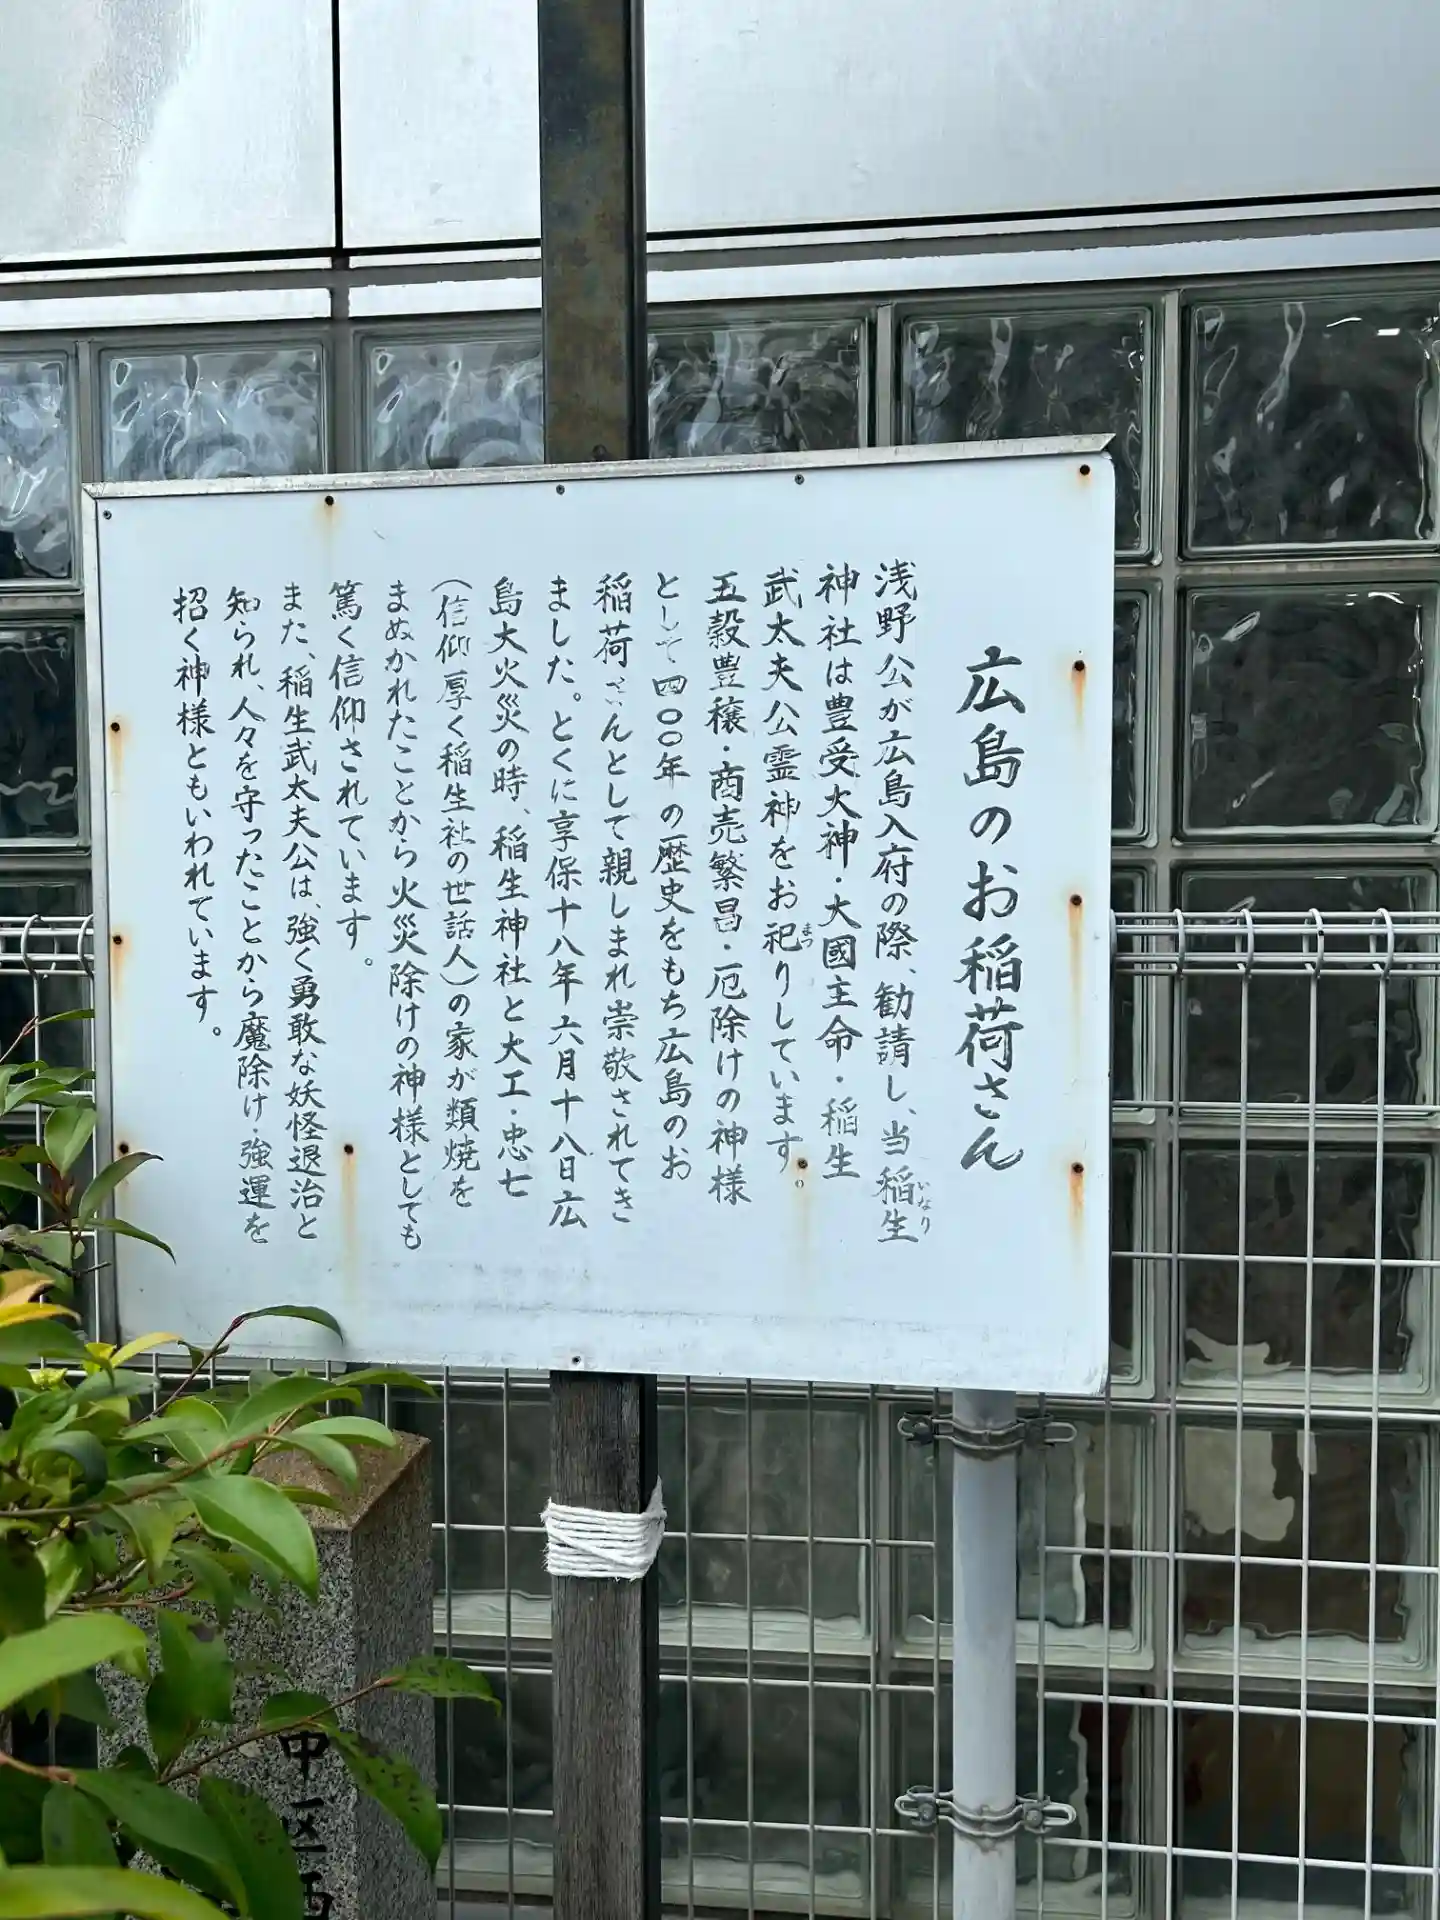 広島のお稲荷さん
浅野公が広島入府の際、勧請し、当稲生
いなり
神社は豊受大神・大國主命・稲生
武太夫公霊神をお祀りしています。
まつ
五穀豊穣・商売繁昌・厄除けの神様
として四〇〇年の歴史をもち広島のお
稲荷さんとして親しまれ崇敬されてき
ました。とくに享保十八年六月十八日広
島大火災の時、稲生神社と大工・忠七
(信仰厚く稲生社の世話人)の家が類焼を
まぬかれたことから火災除けの神様としても
篤く信仰されています。
また、稲生武太夫公は、強く勇敢な妖怪退治と
知られ、人々を守ったことから魔除け・強運を
招く神様ともいわれています。
中区西